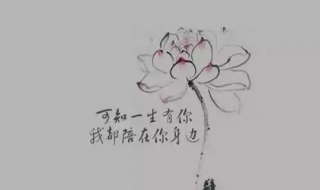 可知一生有你
我都陪在你身边